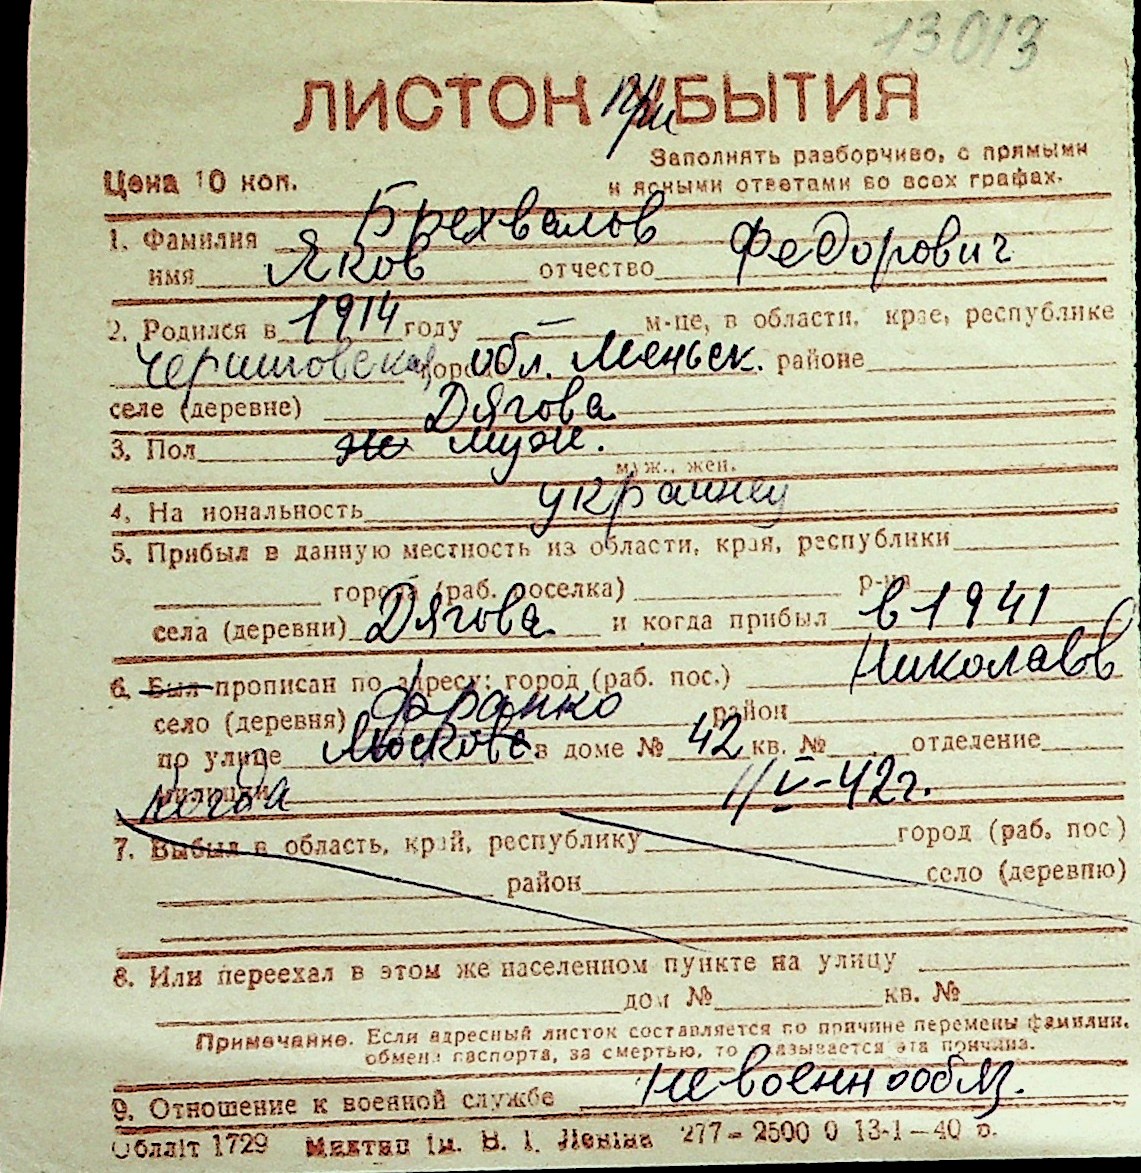 13013
ЛИСТОК при БЫТИЯ
Заполнять разборчиво, с прямыми
и ясными ответами во всех графах.
Цена 10 коп.
1. Фамилия Брехвалов
имя Яков отчество Федорович
2. Родился в 1914 году — м-це, в области, крае, республике
Черниговская обл. Меньск. районе
селе (деревне) Дягова
3. Пол ж муж.
муж., жен.
4. На иональность украинец
5. Прибыл в данную местность из области, края, республики
города (раб. поселка) р-на
села (деревни) Дягова и когда прибыл в 1941
6. Был прописан по адресу: город (раб. пос.) Николаев
село (деревня) район
по улице в доме № 42 кв. № отделение
милиции когда 11/V-42г.
7. Выбыл в область, край, республику город (раб. пос.)
район село (деревню)
8. Или переехал в этом же населенном пункте на улицу
дом № кв. №
Примечание. Если адресный листок составляется по причине перемены фамилии,
обмена паспорта, за смертью, то указывается эта причина.
9. Отношение к военной службе невоеннообяз.
Обллiт 1729 iм. В. I. Ленiна 277—2500 0 13-1—40 р.